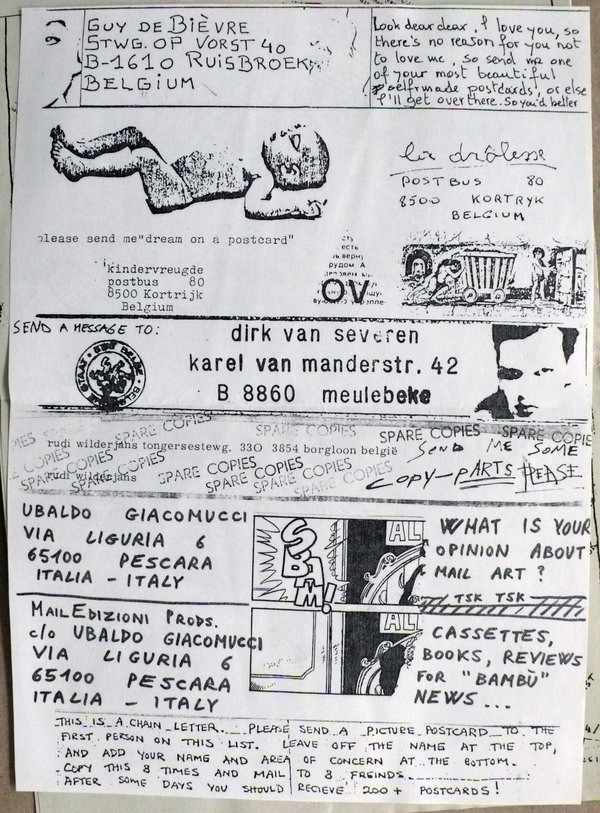 GUY DE BIÈVRE
STWG. OP VORST 40
B-1610 RUISBROEK
BELGIUM
Look dear dear, I love you, so
there's no reason for you not
to love me, so send me one
of your most beautiful
selfmade postcards, or else
I'll get over there. So you'd better
la drôlesse
POSTBUS 80
8500 KORTRYK
BELGIUM
please send me "dream on a postcard"
kindervreugde
postbus 80
8500 Kortrijk
Belgium
есть
рудом А
OV
SEND A MESSAGE TO:
dirk van severen
karel van manderstr. 42
B 8860 meulebeke
SPARE COPIES SPARE COPIES SPARE COPIES SPARE COPIES
rudi wilderjans tongersestewg. 330 3854 borgloon belgië
SEND ME SOME
COPY-PARTS PLEASE
SPARE COPIES SPARE COPIES SPARE COPIES
rudi wilderjans
SPARE COPIES SPARE COPIES
UBALDO GIACOMUCCI
VIA LIGURIA 6
65100 PESCARA
ITALIA - ITALY
SBAM!
ALL
WHAT IS YOUR
OPINION ABOUT
MAIL ART?
TSK TSK
MAILEDIZIONI PRODS.
c/o UBALDO GIACOMUCCI
VIA LIGURIA 6
65100 PESCARA
ITALIA - ITALY
ALL
CASSETTES,
BOOKS, REVIEWS
FOR "BAMBÙ"
NEWS...
THIS IS A CHAIN LETTER. PLEASE SEND A PICTURE POSTCARD TO THE
FIRST PERSON ON THIS LIST. LEAVE OFF THE NAME AT THE TOP,
AND ADD YOUR NAME AND AREA OF CONCERN AT THE BOTTOM.
COPY THIS 8 TIMES AND MAIL TO 8 FREINDS.
AFTER SOME DAYS YOU SHOULD RECIEVE 200+ POSTCARDS!